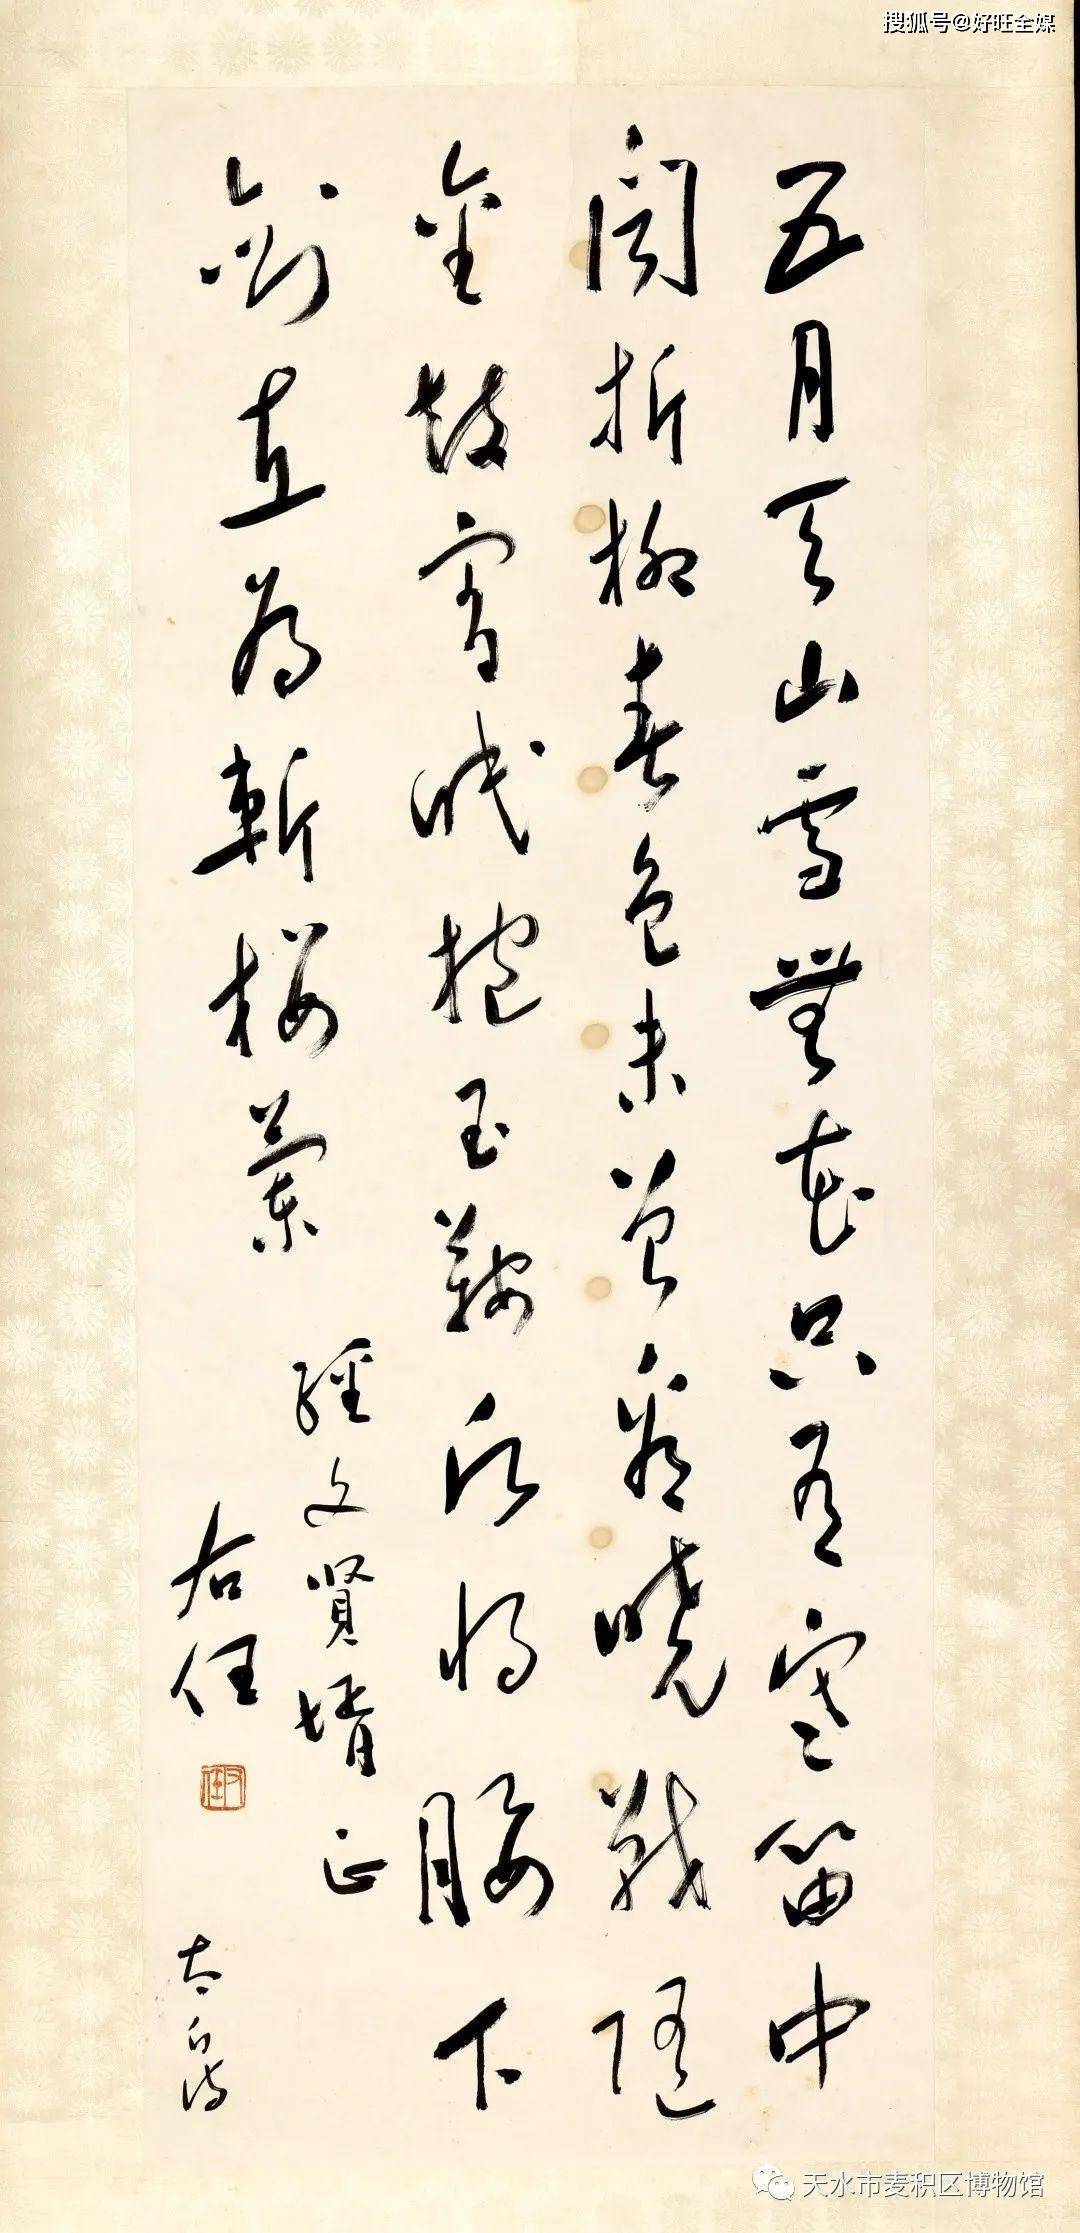 搜狐号@好旺全媒
五月天山雪無花只有寒笛中
聞折柳春色未曾看曉戰隨
金鼓宵眠抱玉鞍願將腰下
劍直為斬樓蘭
經文賢婿正
右任
右任
太白詩
天水市麦积区博物馆